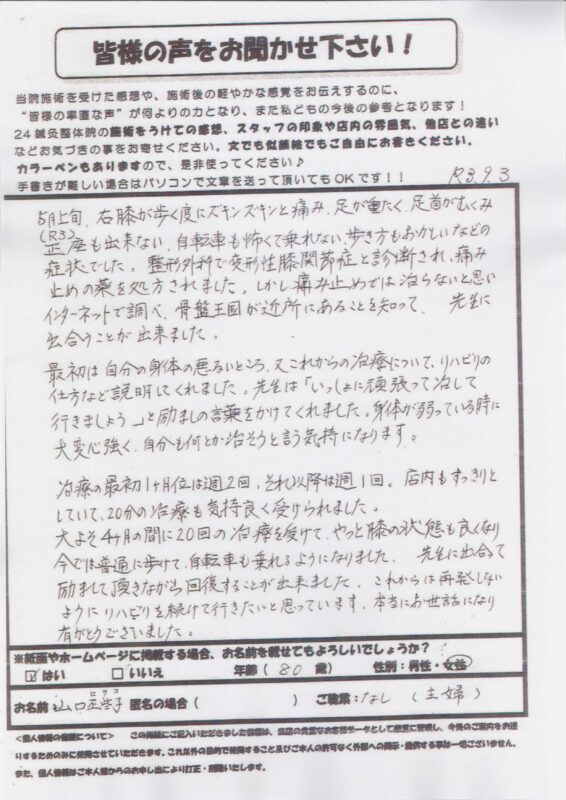 皆様の声をお聞かせ下さい！
当院施術を受けた感想や、施術後の軽やかな感覚をお伝えするのに、
“皆様の率直な声”が何よりの力となり、また私どもの今後の参考となります！
24鍼灸整体院の施術をうけての感想、スタッフの印象や店内の雰囲気、他店との違い
などお気づきの事をお寄せください。文でも似顔絵でもご自由にお書きください。
カラーペンもありますので、是非使ってください♪
手書きが難しい場合はパソコンで文章を送って頂いてもOKです！！
R3.9.3
5月上旬、右膝が歩く度にズキンズキンと痛み、足が重たく、足首がむくみ
(R3)
正座も出来ない、自転車も怖くて乗れない、歩き方もおかしいなどの
症状でした。整形外科で変形性膝関節症と診断され、痛み
止めの薬を処方されました。しかし痛み止めでは治らないと思い
インターネットで調べ、骨盤王国が近所にあることを知って、 先生に
出合うことが出来ました。
最初は自分の身体の悪るいところ、又これからの治療について、リハビリの
仕方など説明してくれました。先生は「いっしょに頑張って治して
行きましょう」と励ましの言葉をかけてくれました。身体が弱っている時に
大変心強く、自分も何とか治そうと言う気持になります。
治療の最初1ヶ月位は週2回、それ以降は週1回。店内もすっきりと
していて、20分の治療も気持良く受けられました。
大よそ4ヶ月の間に20回の治療を受けて、やっと膝の状態も良くなり
今では普通に歩けて、自転車も乗れるようになりました。 先生に出合って
励まして頂きながら回復することが出来ました。これからは再発しない
ようにリハビリを続けて行きたいと思っています。本当にお世話になり
有がとうございました。
※紙面やホームページに掲載する場合、お名前を載せてもよろしいでしょうか？
☑はい □いいえ 年齢（ 80 歳） 性別：男性・女性
お名前 山口 子 匿名の場合（ ） ご職業：なし （主婦）
<個人情報の保護について> この用紙にご記入いただきました情報は、当店の貴重なお客様データとして厳重に管理し、今後のご案内をお送
りするためのみに使用させていただきます。これ以外の目的で使用すること及びご本人の許可なく外部への開示・提供する事は一切ございません。
また、個人情報はご本人様からのお申し出により訂正・削除いたします。